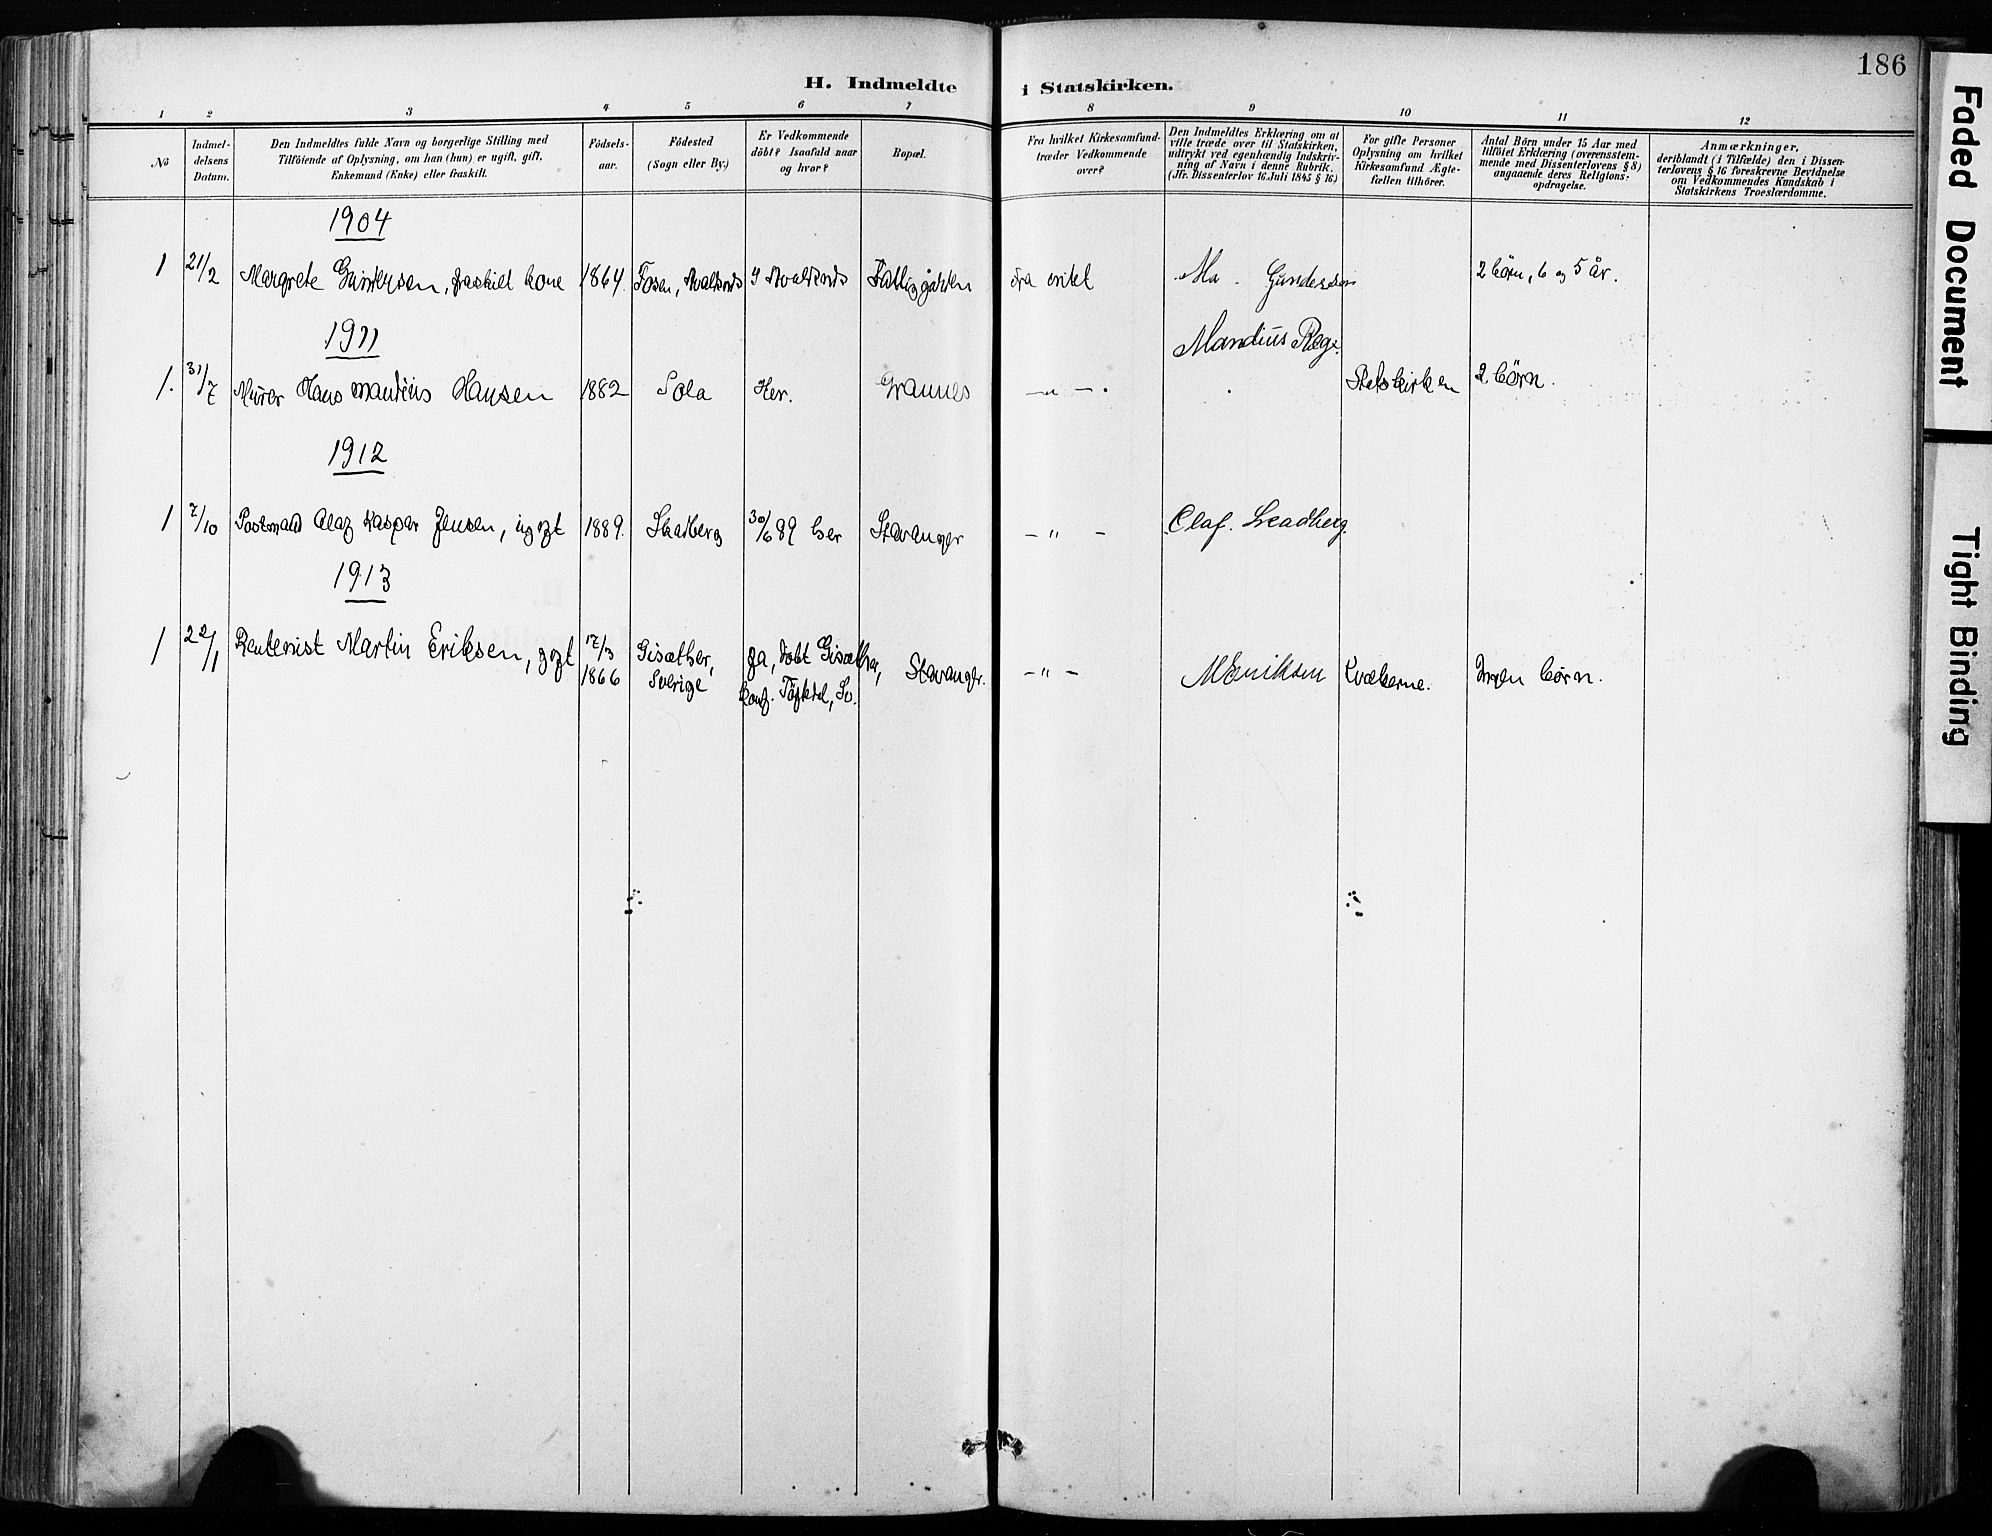 186
H. Indmeldte i Statskirken.
1 2 3 4 5 6 7 8 9 10 11 12
No
Indmel-
delsens
Datum.
Den Indmeldtes fulde Navn og borgerlige Stilling med
Tilföiende af Oplysning, om han (hun) er ugift, gift,
Enkemand (Enke) eller fraskilt.
Födsels-
aar.
Födested
(Sogn eller By.)
Er Vedkommende
döbt? Isaafald naar
og hvor?
Bopæl.
Fra hvilket Kirkesamfund-
træder Vedkommende
over?
Den Indmeldtes Erklæring om at
ville træde over til Statskirken,
udtrykt ved egenhændig Indskriv-
ning af Navn i denne Rubrik.
(Jfr. Dissenterlov 16.Juli 1845 § 16.)
For gifte Personer
Oplysning om hvilket
Kirkesamfund Ægte-
fællen tilhörer.
Antal Börn under 15 Aar med
tilföiet Erklæring (overensstem-
mende med Dissenterlovens § 8)
angaaende deres Religions-
opdragelse.
Anmærkninger,
deriblandt (i Tilfælde) den i Dissen-
terlovens § 16 foreskrevne Bevidnelse
om Vedkommendes Kundskab i
Statskirkens Troeslærdomme.
1904
1 21/2 Margrete Gundersen, fraskilt kone 1864. Fosen, Avaldsnes I Avaldsnes Fattiggården fra intet Ma. Gundersen 2 börn, 6 og 5 år.
1911
Mandius Rege.
1. 31/7 Murer Hans Mandius Hansen 1882 Sola Her. Grannes —"— . Statskirken 2 börn.
1912
1 7/10 Postmand Olaf Kaspar Jensen, ugift 1889. Skadberg 30/6 89 her Stavanger —"— Olaf. Skadberg.
1913
1 22/1 Rentenist Martin Eriksen, gift 17/3 Gisæther, Ja, döbt Gisæther, Stavanger. —"— M Eriksen Kvækerne. Ingen börn.
1866 Sverige konf. Töftedal, Sv.
Faded Document
Tight Binding